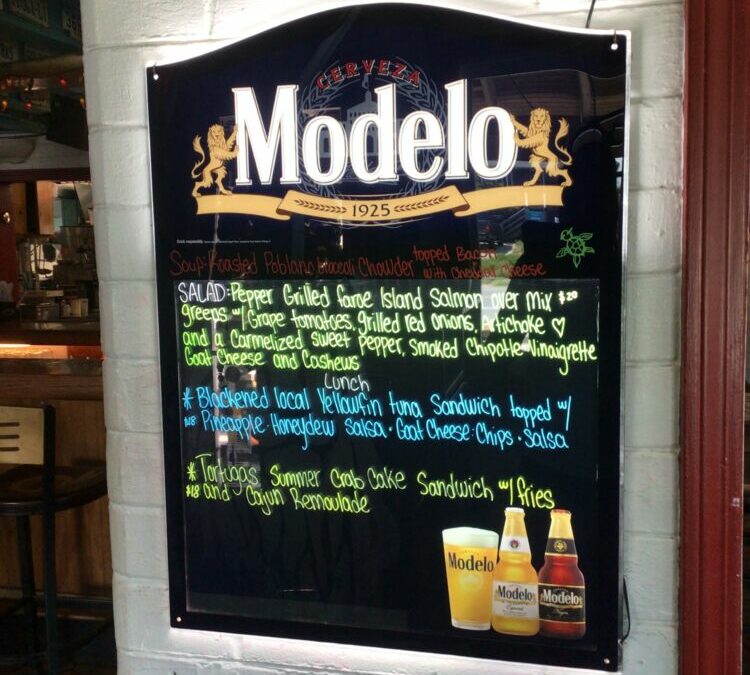 CERVEZA
Modelo
1925
Soup: Roasted Poblano Broccoli Chowder topped Bacon
with Cheddar Cheese
SALAD: Pepper Grilled Faroe Island Salmon over Mix $20
greens w/ Grape tomatoes, grilled red onions, Artichoke ♡
and a Carmelized sweet Pepper, Smoked Chipotle Vinaigrette
Goat Cheese and Cashews
Lunch
* Blackened local Yellowfin tuna Sandwich topped w/
$18 Pineapple · Honeydew Salsa · Goat Cheese · Chips · Salsa
* Tortugas Summer Crab Cake Sandwich w/ fries
$18 and Cajun Remoulade
Modelo
Modelo
Modelo